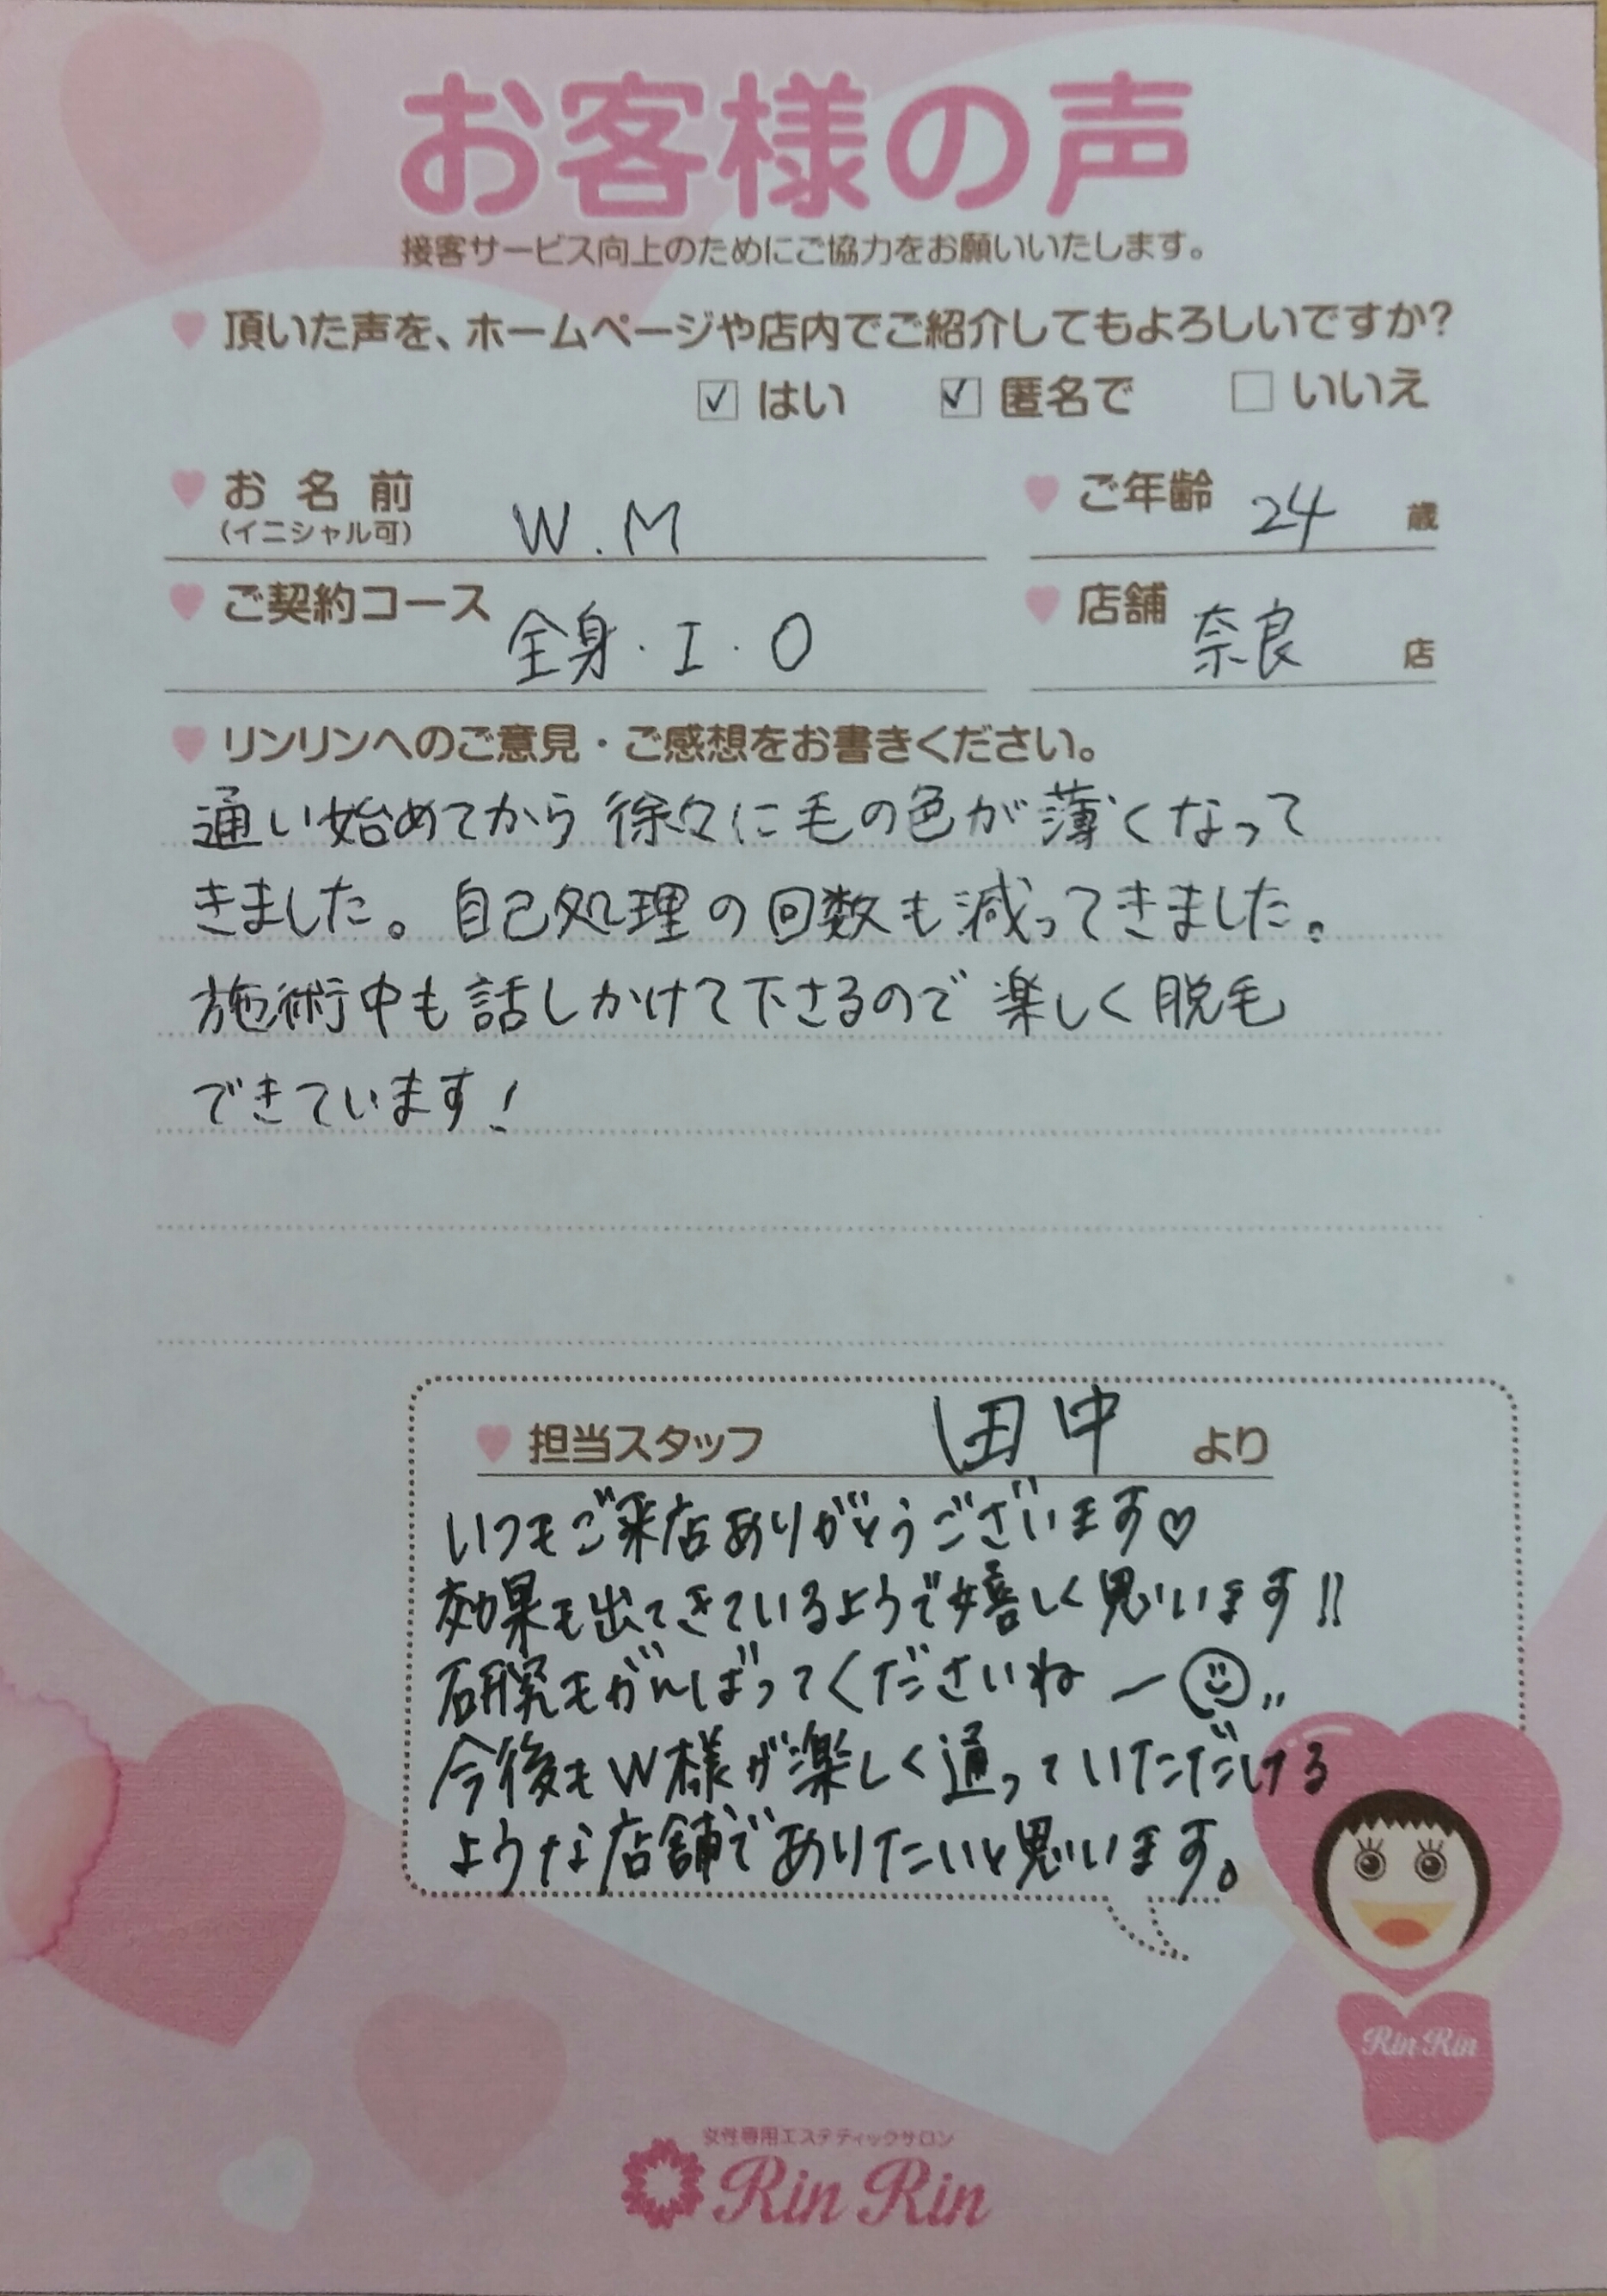 お客様の声
接客サービス向上のためにご協力をお願いいたします。
頂いた声を、ホームページや店内でご紹介してもよろしいですか?
はい 匿名で いいえ
お名前 W.M ご年齢 24 歳
(イニシャル可)
ご契約コース 全身・I・O 店舗 奈良 店
リンリンへのご意見・ご感想をお書きください。
通い始めてから徐々に毛の色が薄くなって
きました。自己処理の回数も減ってきました。
施術中も話しかけて下さるので楽しく脱毛
できています!
担当スタッフ 田中 より
いつもご来店ありがとうございます♡
効果も出てきているようで嬉しく思います!!
研究もがんばってくださいねー
今後もW様が楽しく通っていただける
ような店舗でありたいと思います。
Rin Rin
女性専用エステティックサロン
Rin Rin